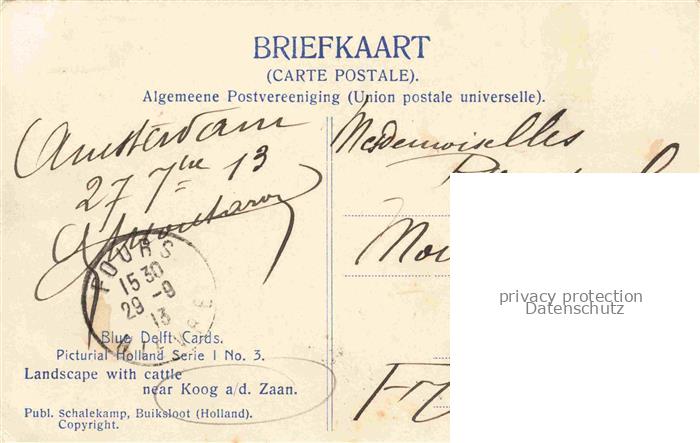 BRIEFKAART
(CARTE POSTALE).
Algemeene Postvereeniging (Union postale universelle).
Amsterdam
27 7bre 13
Mesdemoiselles
POURS
15 30
29 -9
13
NIÈVRE
privacy protection
Datenschutz
Blue Delft Cards.
Picturial Holland Serie I No. 3.
Landscape with cattle
near Koog a/d. Zaan.
Publ. Schalekamp, Buiksloot (Holland).
Copyright.